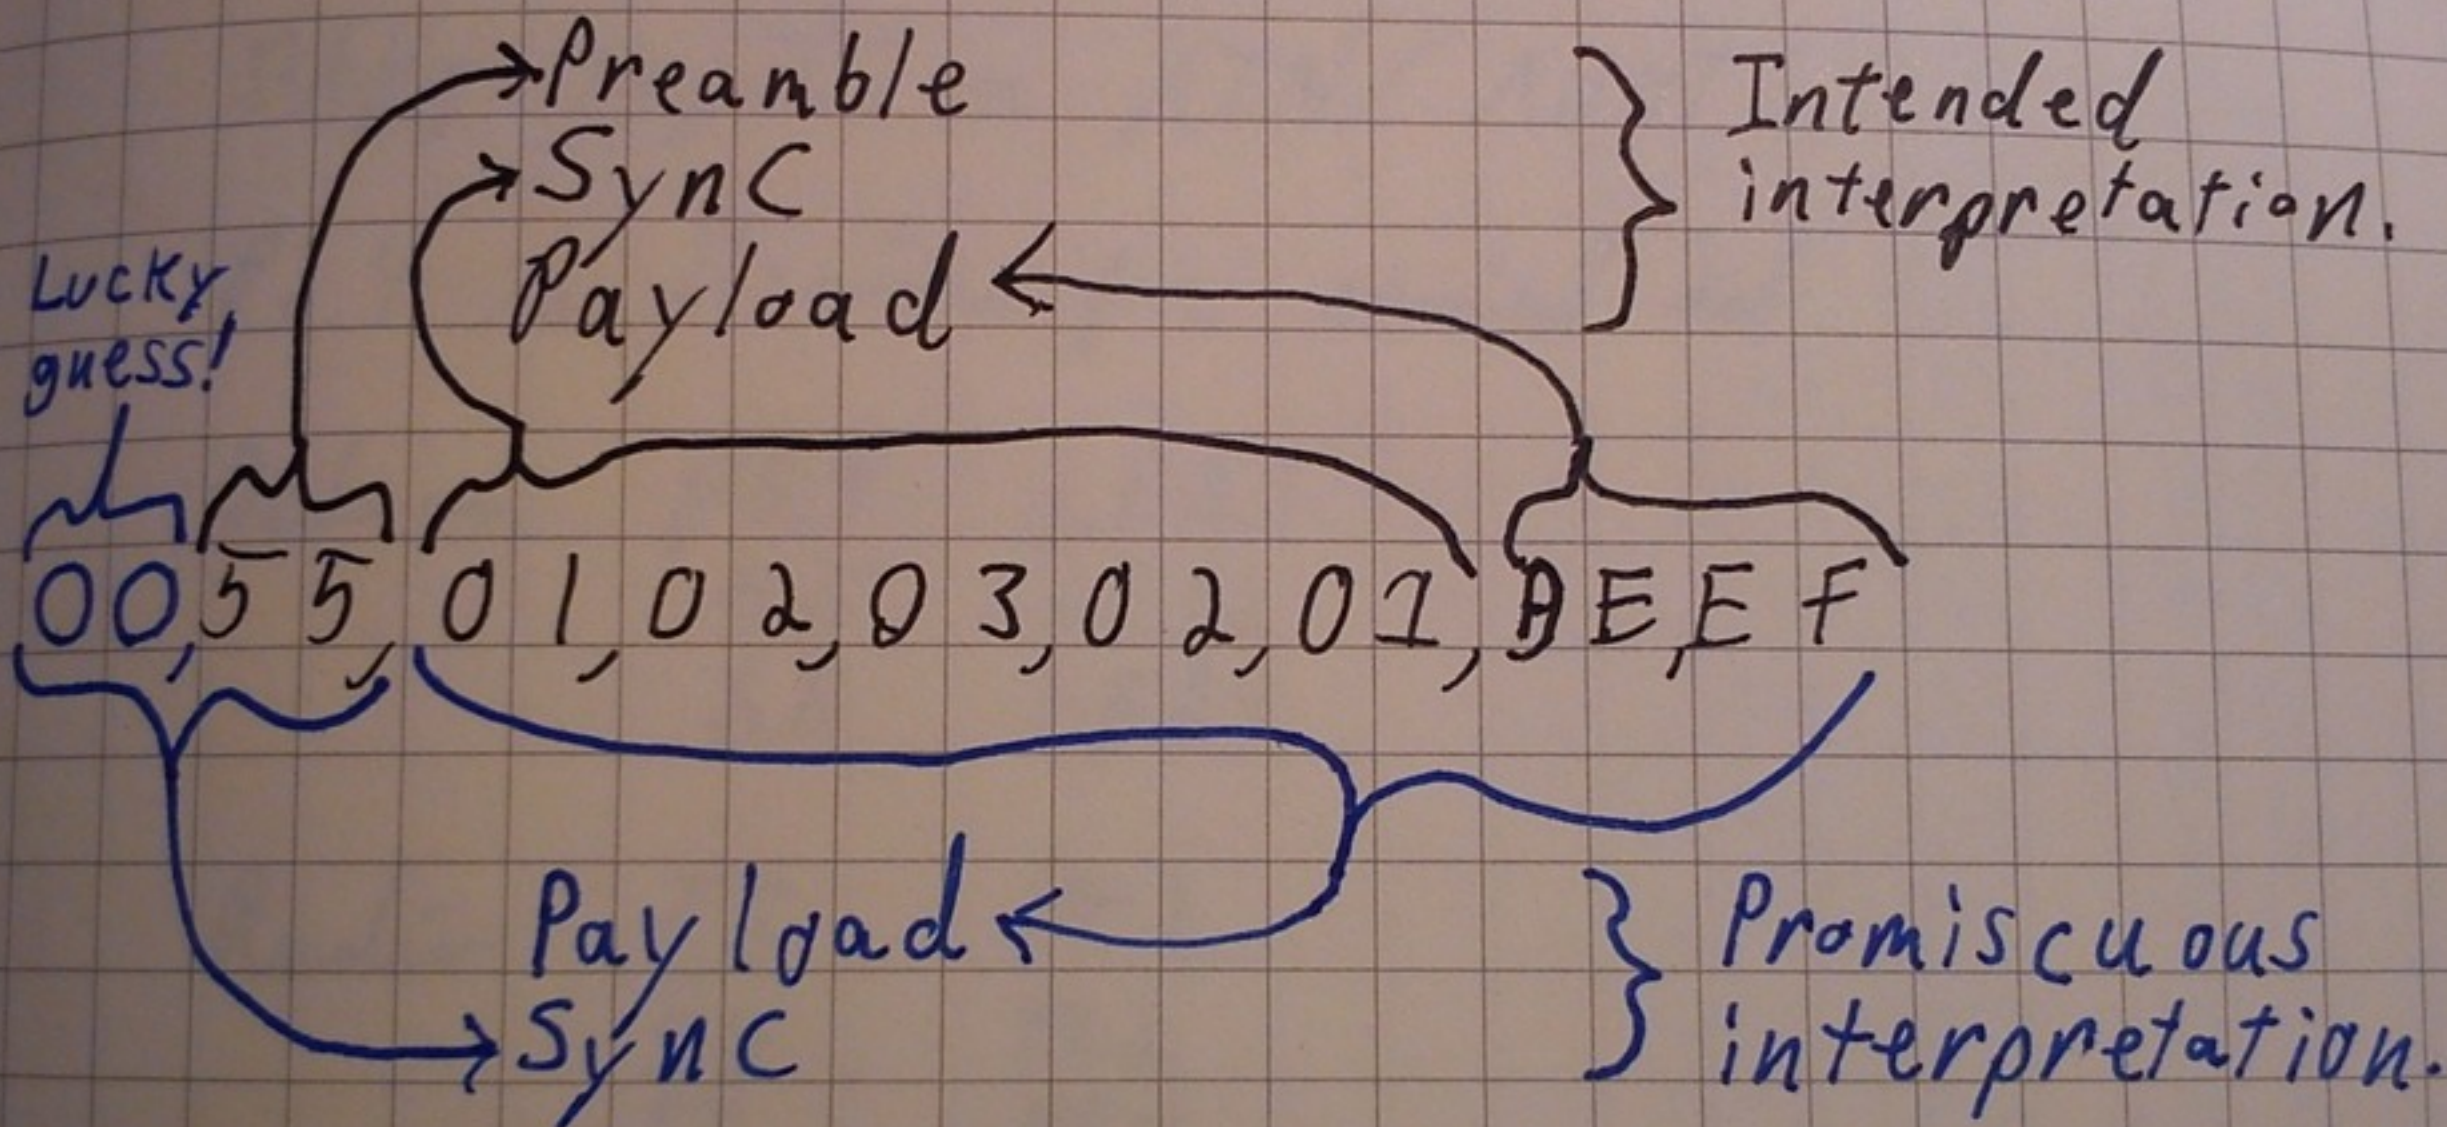 Preamble
Sync
Payload
Intended
interpretation.
Lucky
guess!
00,55,01,02,03,02,01,BE,EF
Payload
Sync
Promiscuous
interpretation.